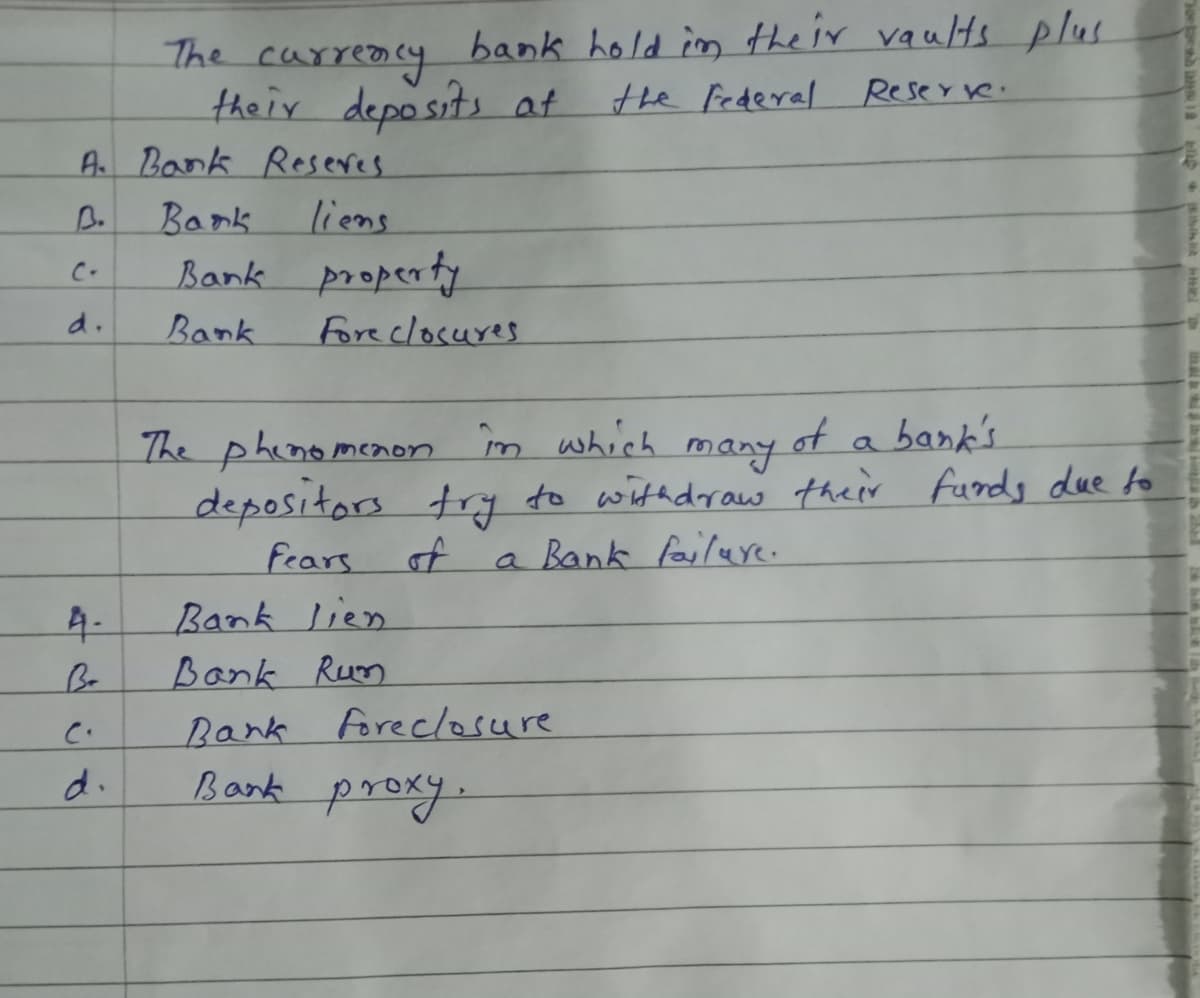 The currency bank hold in their vaults plus
their deposits at the Federal Reserve.
A. Bank Reseves
B. Bank liens
C. Bank property
d. Bank Foreclosures
The phenomenon in which many of a bank's
depositors try to withdraw their funds due to
Fears of a Bank failure.
A. Bank lien
B. Bank Run
C. Bank foreclosure
d. Bank proxy.